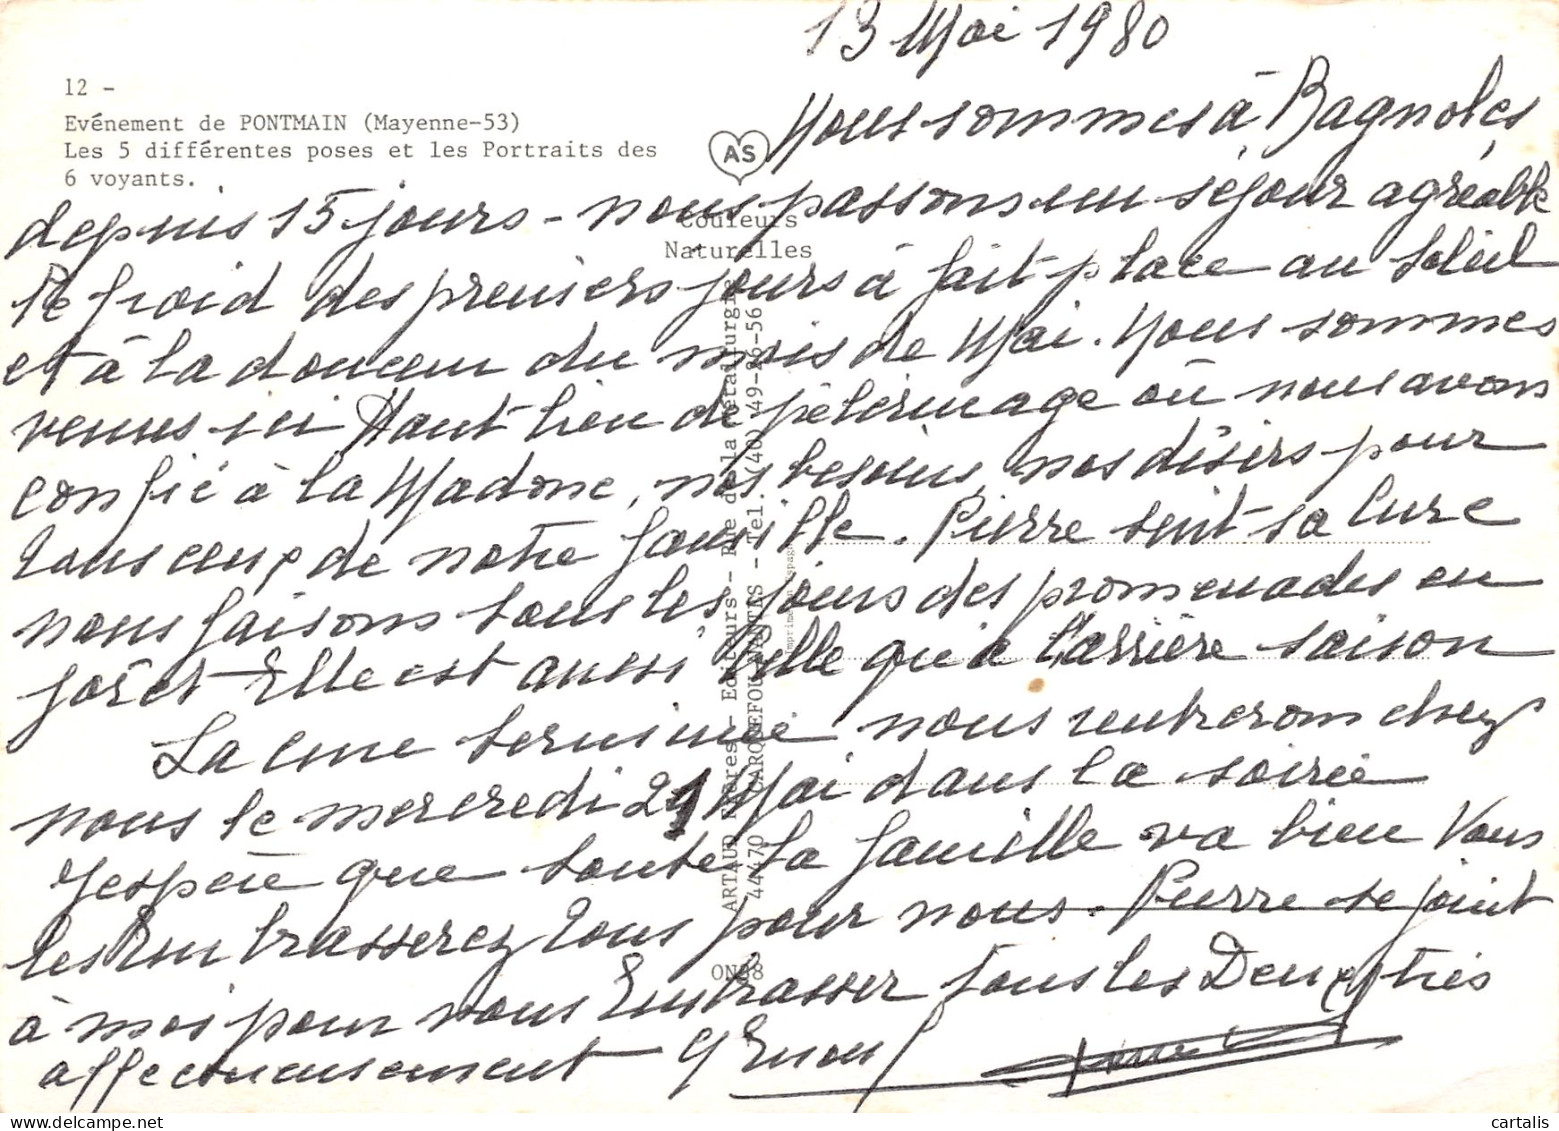 13 Mai 1980
12 -
Evénement de PONTMAIN (Mayenne-53)
Les 5 différentes poses et les Portraits des
6 voyants.
AS
Couleurs
Naturelles
Nous sommes à Bagnoles
depuis 15 jours - nous passons un séjour agréable
le froid des premiers jours à fait place au soleil
et à la douceur du mois de Mai. Nous sommes
venus ici Haut lieu de pèlerinage où nous avons
confié à la Madone, nos besoins, nos désirs pour
tous ceux de notre famille. Pierre suit sa cure
nous faisons tous les jours des promenades en
forêt Elle est aussi belle qu'à l'arrière saison
La cure terminée nous rentrerons chez
nous le mercredi 21 Mai dans la soirée
J'espère que toute la famille va bien Vous
les Embrasserez tous pour nous. Pierre se joint
à moi pour vous Embrasser tous les Deux très
affectueusement
ARTAUD Frères - Editeurs - Rue de la Métallurgie
44470 CARQUEFOU-NANTES - Tel. (40) 49-26-56
ON88
cartalis